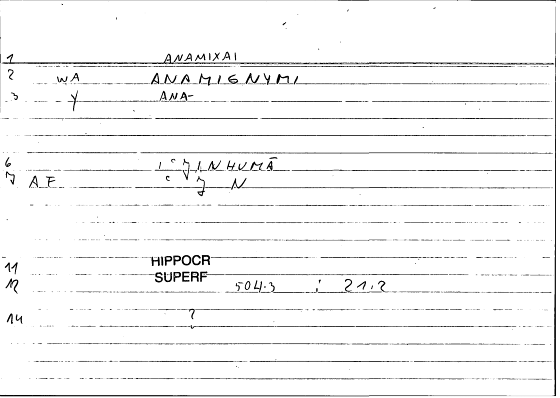 1 ANAMIXAI
2 WA ANAMIGNYMI
3 Y ANA-
6 INHUMĀ
7 AF N
11 HIPPOCR
12 SUPERF 504.3 : 21.2
14 ?